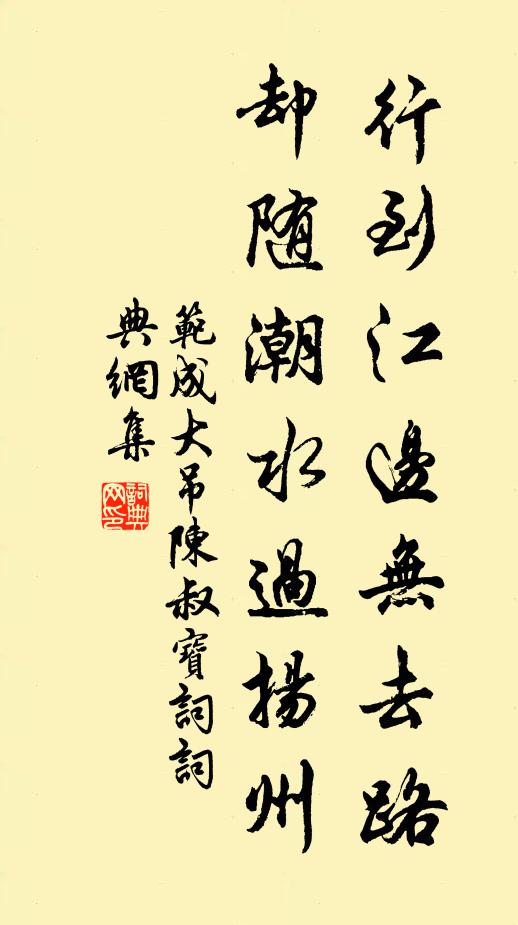 行到江邊無去路
却随潮水過揚州
範成大吊陳叔寶詞詞
典網集
詞典
网印